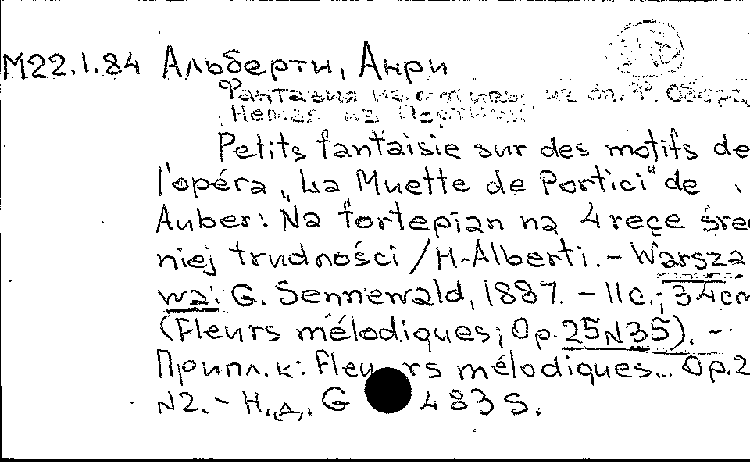 M22.1.84 Альберти, Анри
Фантазия на мотивы из оп. Ф. Обера
Немая из Портичи
Petits fantaisie sur des motifs de
l'opéra „La Muette de Portici" de
Auber: Na fortepian na 4 ręce śred
niej trudności / H. Alberti. - Warsza
wa: G. Sennewald, 1887. - 11 с.; 34 cm
(Fleurs mélodiques; Op. 25 N35). -
Припл. к: Fleurs mélodiques... Op. 2
N2. - Н.д. G 483 S.